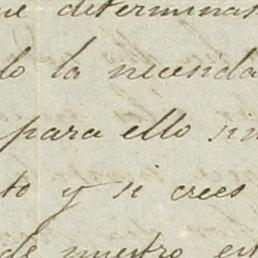 ue determinas
lo la necesida
para ello sin
to y si crees
de nuestro es